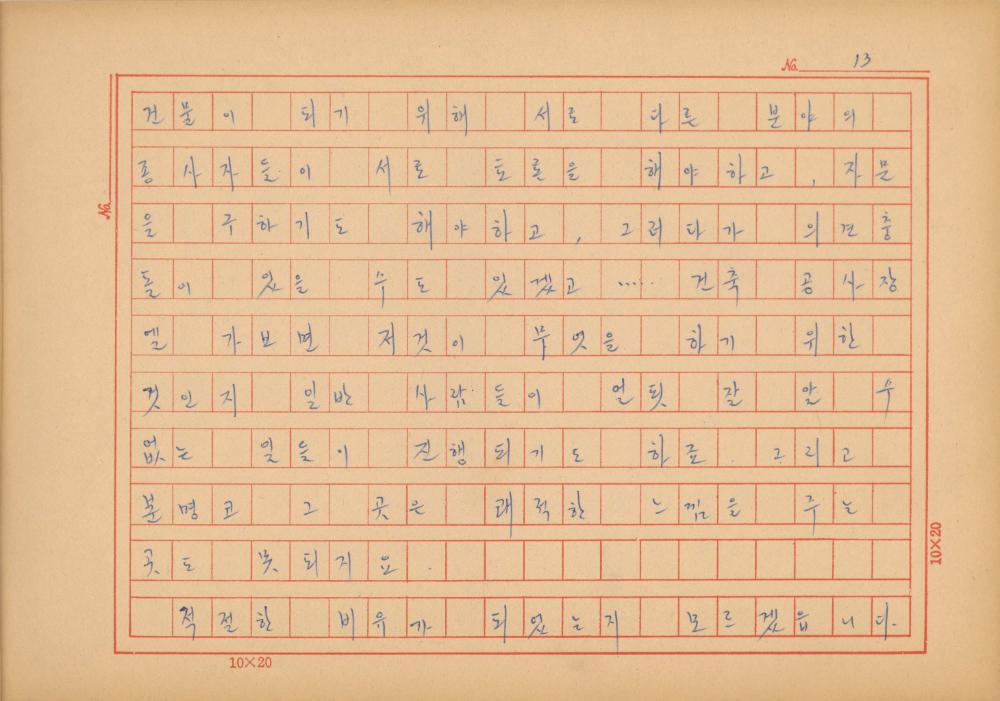 No. 13
건물이 되기 위해 서로 다른 분야의
종사자들이 서로 토론을 해야하고, 자문
을 구하기도 해야하고, 그러다가 의견충
돌이 있을 수도 있겠고 ····· 건축 공사장
엘 가보면 저것이 무엇을 하기 위한
것인지 일반 사람들이 언뜻 잘 알 수
없는 일들이 진행되기도 하죠. 그리고
분명코 그 곳은 쾌적한 느낌을 주는
곳도 못되지요.
적절한 비유가 되었는지 모르겠읍니다.
No.
10×20
10×20